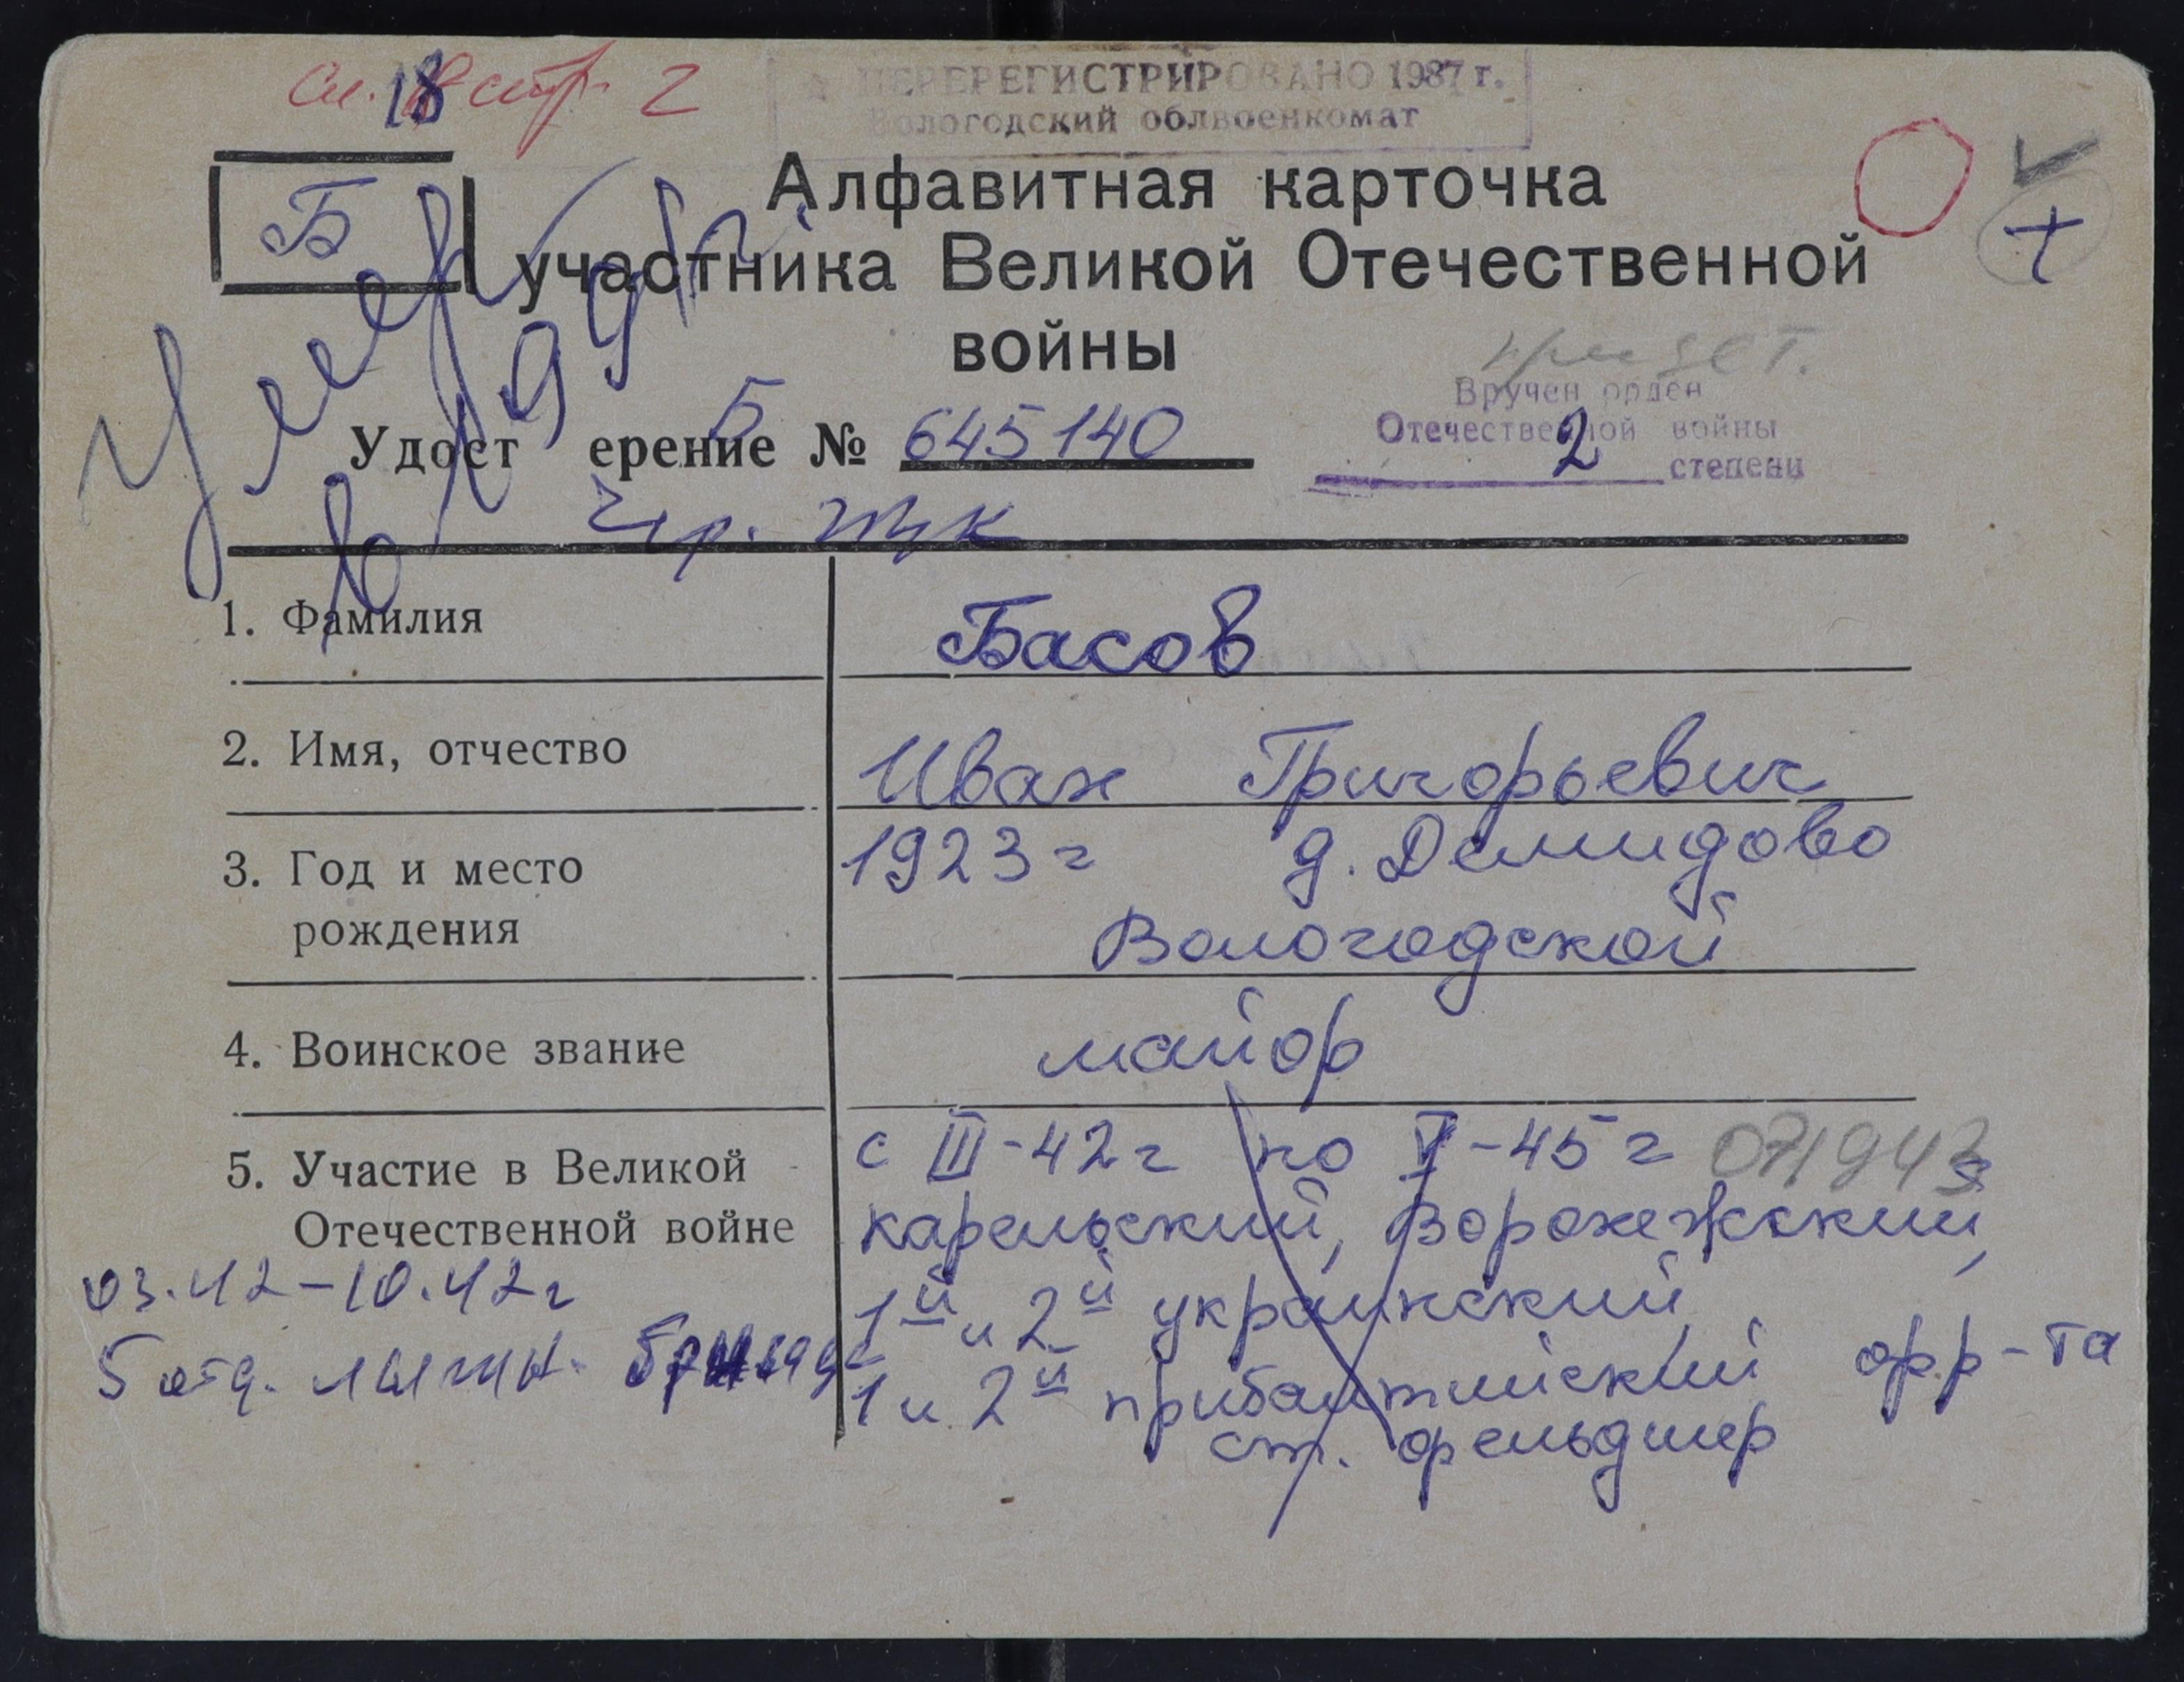 См. стр. 2
18
ПЕРЕРЕГИСТРИРОВАНО 1987 г.
Вологодский облвоенкомат
Б
Алфавитная карточка
участника Великой Отечественной
войны
Умер
в 199
Вручен орден
Отечественной войны
2 степени
Удост ерение Б № 645140
гр.
1. Фамилия Басов
2. Имя, отчество Иван Григорьевич
3. Год и место 1923 г д. Демидово
рождения Вологодской
4. Воинское звание майор
5. Участие в Великой с III-42 г по V-45 г
Отечественной войне карельский, Воронежский,
03.42-10.42 г 1й и 2й украинский,
5 отд. лыжн. бригад 1 и 2й прибалтийский фр-та
ст. фельдшер